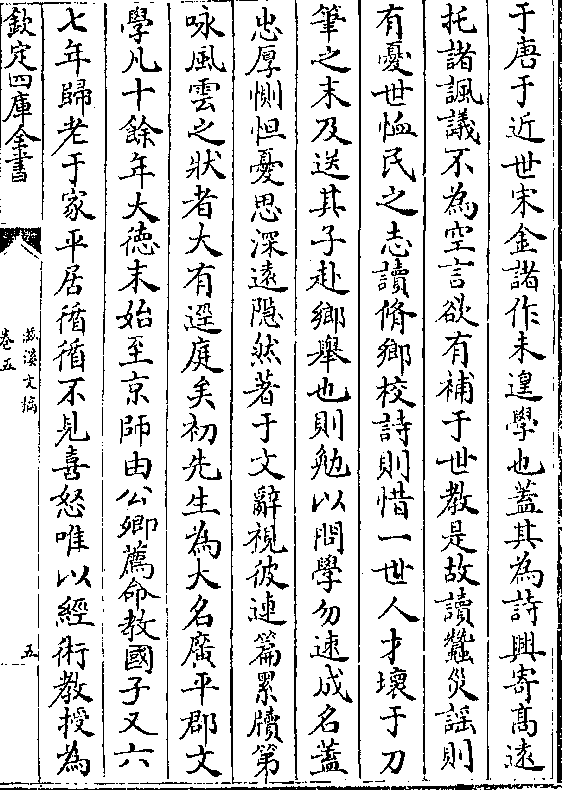 于唐于近世宋金諸作未遑學也蓋其為詩興寄髙遠
托諸諷議不為空言欲有補于世教是故讀蠶災謡則
有憂世恤民之志讀脩鄉校詩則惜一世人才壞于刀
筆之末及送其子赴鄉舉也則勉以問學勿速成名蓋
忠厚惻怛憂思深遠隠然著于文辭視彼連篇累牘第
咏風雲之狀者大有逕庭矣初先生為大名廣平郡文
學凡十餘年大徳末始至京師由公卿薦命教國子又六
七年歸老于家平居循循不見喜怒唯以經術教授為
欽定四庫全書
滋溪文稿
卷五
五